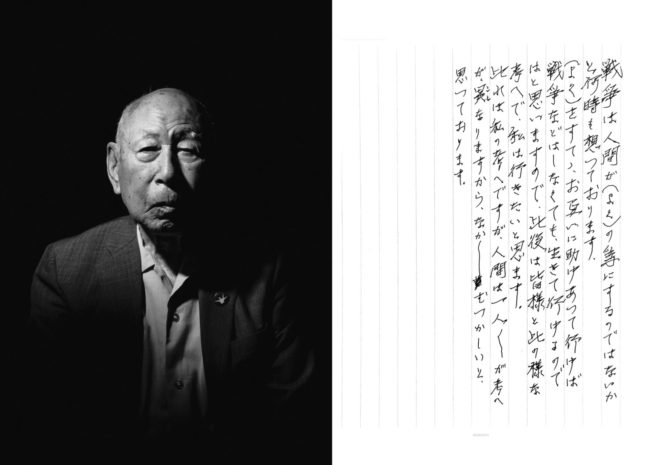 戦争は人間が（よく）の為にするのではないか
と何時も想っております．
（よく）をすてゝ、お互いに助けあって行けば
戦争などはしなくても、生きて行けるので
はと思いますので、此後は皆様と此の様な
考へで、私は行きたいと思ます。
此れは私の考へですが、人間は一人〱が考へ
が、異なりますから、なか〱むつかしいと、
思っております。